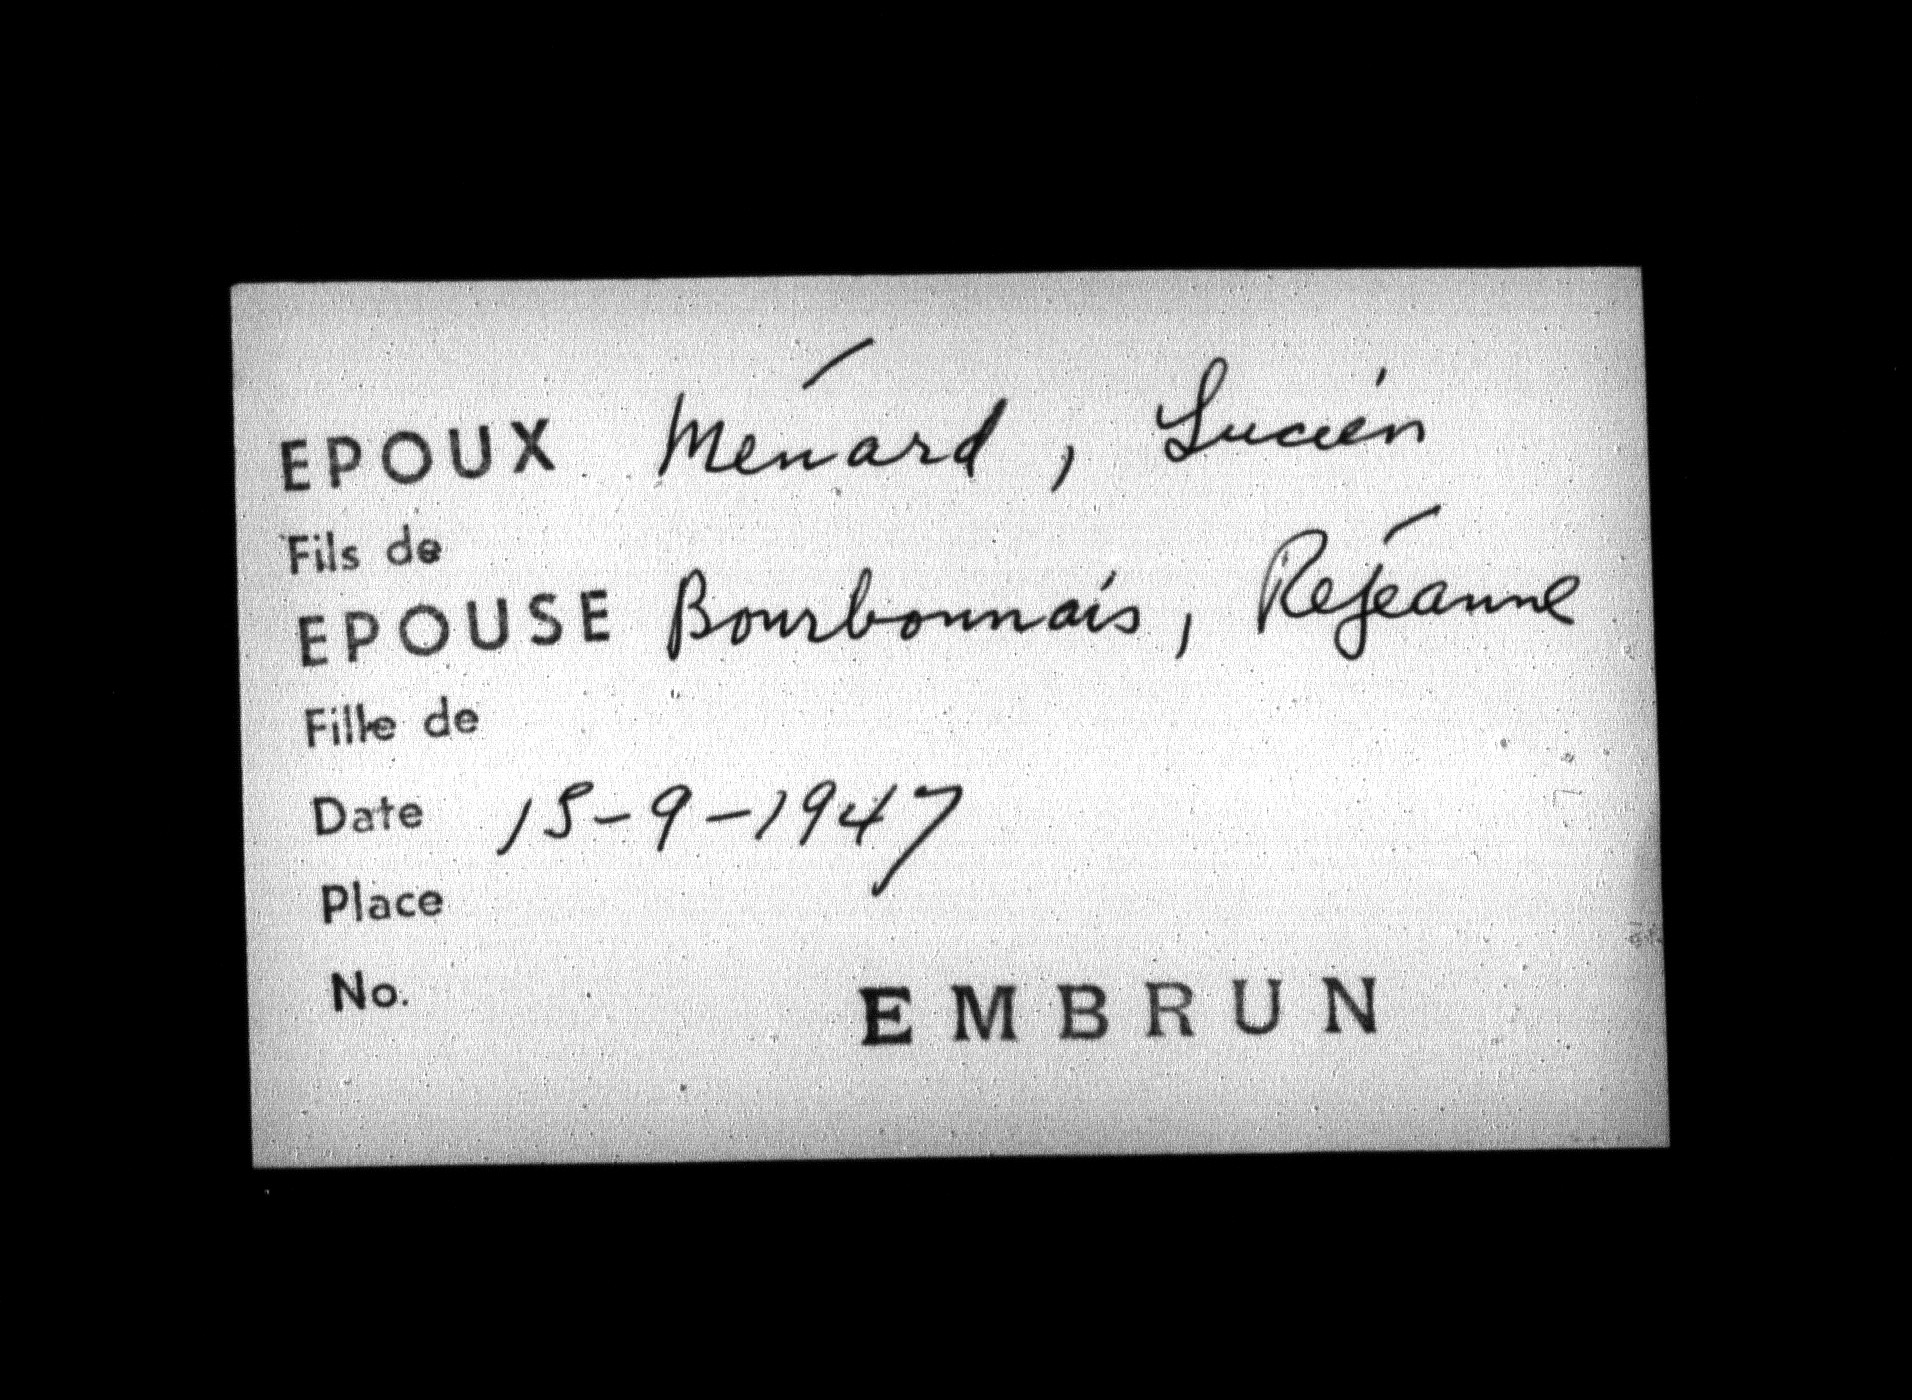 EPOUX Ménard, Lucien
Fils de
EPOUSE Bourbonnais, Réjeanne
Fille de
Date 15-9-1947
Place
No.
EMBRUN